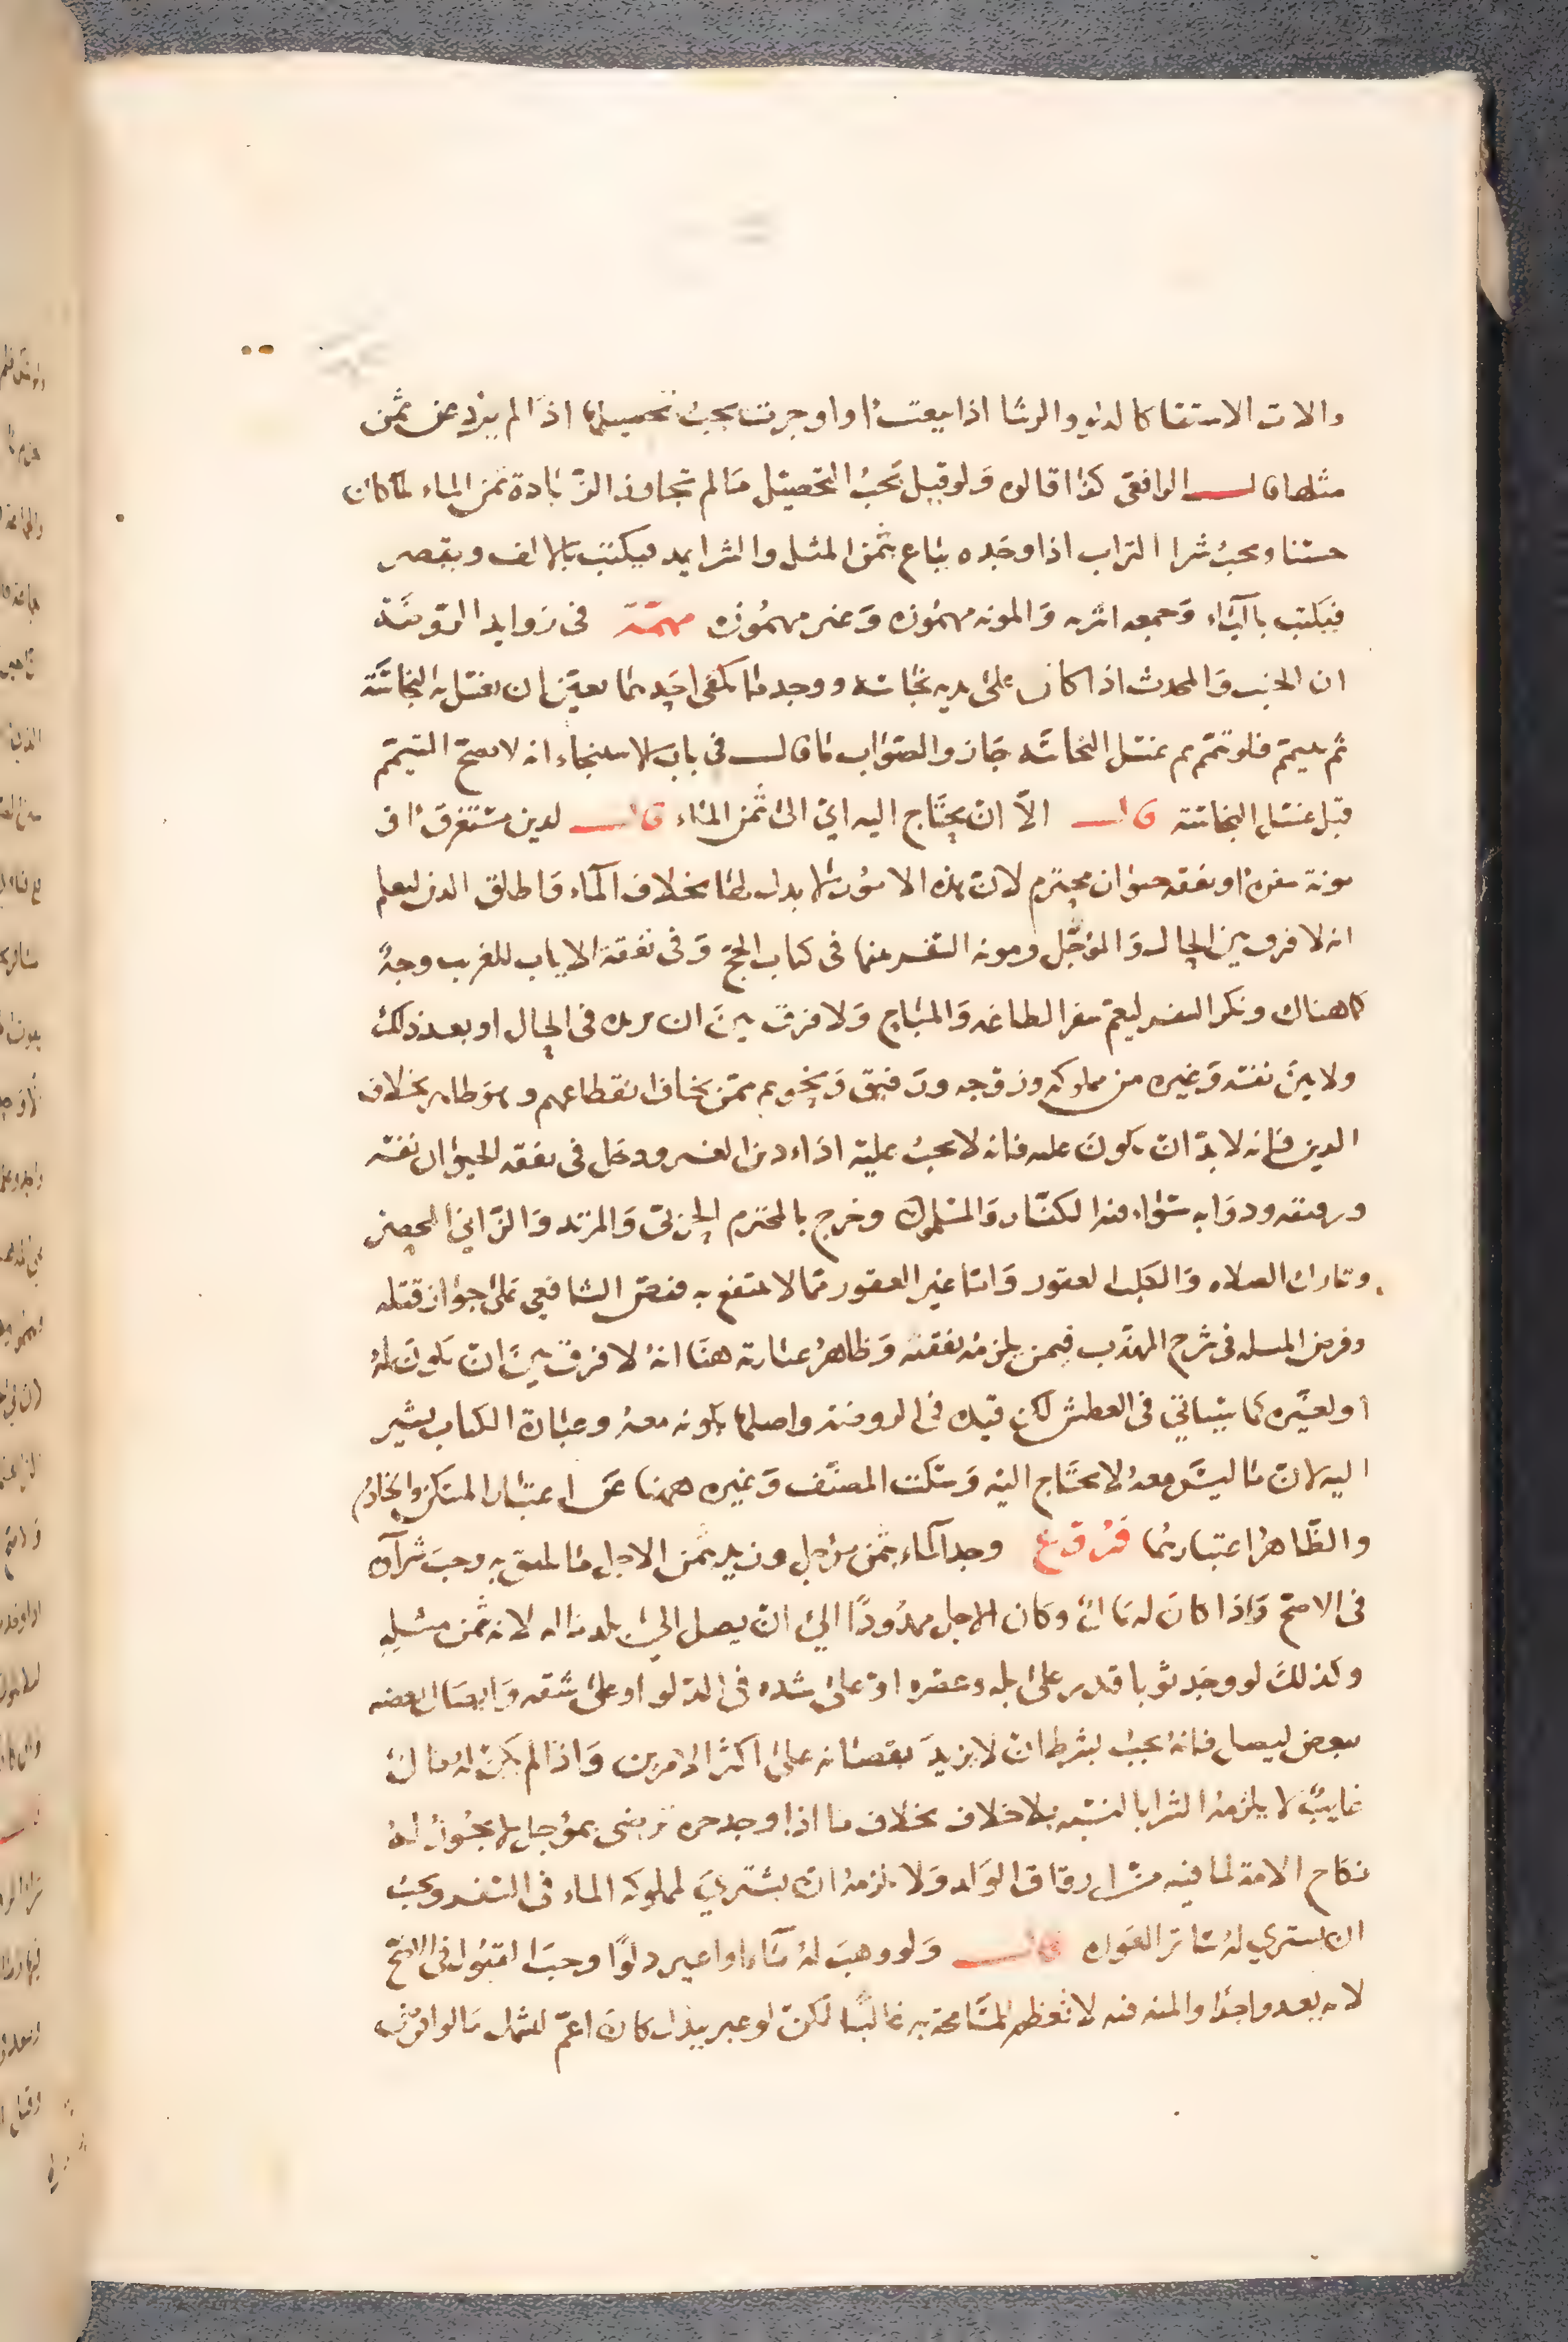 والات الاستقا كالدلو والرشا اذا بيعت او اوجرت يجب تحصيلها اذا لم يزد عن ثمن
مثلها قال الرافعي كذا قالوه ولو قيل يجب التحصيل ما لم تجاوز الزيادة ثمن الماء لكان
حسنا ويجب شرا التراب اذا وجده يباع بثمن المثل والشرا يمد فيكتب بالالف ويقصر
فيكتب بالياء وجمعه اشريه والمونه مهموزه وغير مهموزه مهمة في زوايد الروضة
ان الجنب والمحدث اذا كان على بدنه نجاسة ووجد ما يكفي احدهما تعين ان يغسل به النجاسة
ثم يتيمم فلو تيمم ثم غسل النجاسه جاز والصواب ما قال في باب الاستنجاء انه لا يصح التيمم
قبل غسل النجاسة قال الا ان يحتاج اليه اي الى ثمن الماء قال لدين مستغرق او
مونة سفره او نفقه حيوان محترم لان هذه الامور لا بدل لها بخلاف الماء واطلق الدين ليعلم
انه لا فرق بين الحال والمؤجل ومونه السفر منها في كتاب الحج وفي نفقة الاياب للغريب وجه
كما هناك ونكر السفر ليعم سفر الطاعه والمباح ولا فرق بين ان يريده في الحال او بعد ذلك
ولا بين نفسه وغيره من مملوكه وزوجه ورفيق ونحوهم ممن يخاف انقطاعهم وهو ظاهر بخلاف
الدين فانه لا بد ان يكون عليه فانه لا يجب عليه اداء دين الغير ودخل في نفقه الحيوان نفسه
ورفيقه ودوابه سواء فيه الكفار والمسلمون وخرج بالمحترم الحربي والمرتد والزاني المحصن
وتارك الصلاه والكلب العقور واما غير العقور مما لا ينتفع به فنص الشافعي على جواز قتله
وفرض المسله في شرح المهذب فيمن يلزمه نفقته وظاهر عبارته هنا انه لا فرق بين ان يكون له
او لغيره كما سياتي في العطش لكن قيده في الروضة واصلها بكونه معه وعبارة الكتاب تشير
اليه لان ما ليس معه لا يحتاج اليه وسكت المصنف وغيره ههنا عن اعتبار المسكن والخادم
والظاهر اعتبارهما فروع وجد الماء بثمن مؤجل وزيد بثمن الاجل ما يليق به وجب شراؤه
في الاصح واذا كان له مال وكان الاجل ممدودا الى ان يصل الى بلد ماله لانه ثمن مثله
وكذلك لو وجد ثوبا قدر على بله وعصره او على شده في الدلو او على شقه وايصال بعضه
ببعض ليصل فانه يجب بشرط ان لا يزيد نقصانه على اكثر الامرين واذا لم يكن له مال
غايب لا يلزمه الشرا بالنسيه بلا خلاف بخلاف ما اذا وجد حره ترضى بمؤجل لا يجوز له
نكاح الامة لما فيه من ارقاق الولد ولا يلزمه ان يشتري لمملوكه الماء في السفر ويجب
ان يشتري له ساتر العوره قال ولو وهب له ماء او اعير دلوا وجب القبول في الاصح
لانه يعد واجدا والمنه فيه لا تعظم للمسامحة به غالبا لكن لو عبر ببذل كان اعم ليشمل